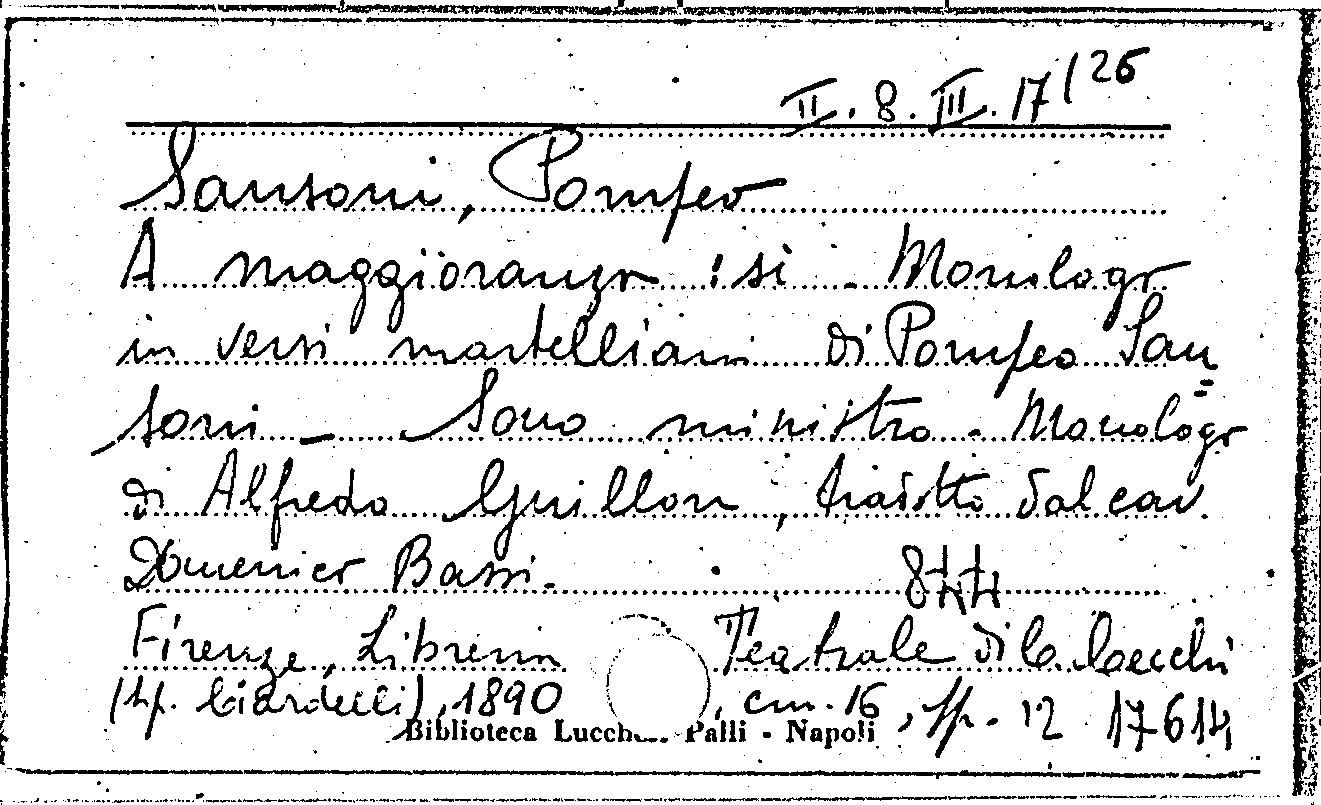 II. 8. III. 17/26
Sansoni, Pompeo
A maggioranza: si. Monologo
in versi martelliani di Pompeo San
soni - Sono ministro. Monologo
di Alfredo Guillon, tradotto dal cav.
Domenico Bassi.
844
Firenze, Libreria Teatrale di C. Cecchi
(tip. Ciardelli), 1890, cm. 16, pp. 12 17614
Biblioteca Palli - Napoli